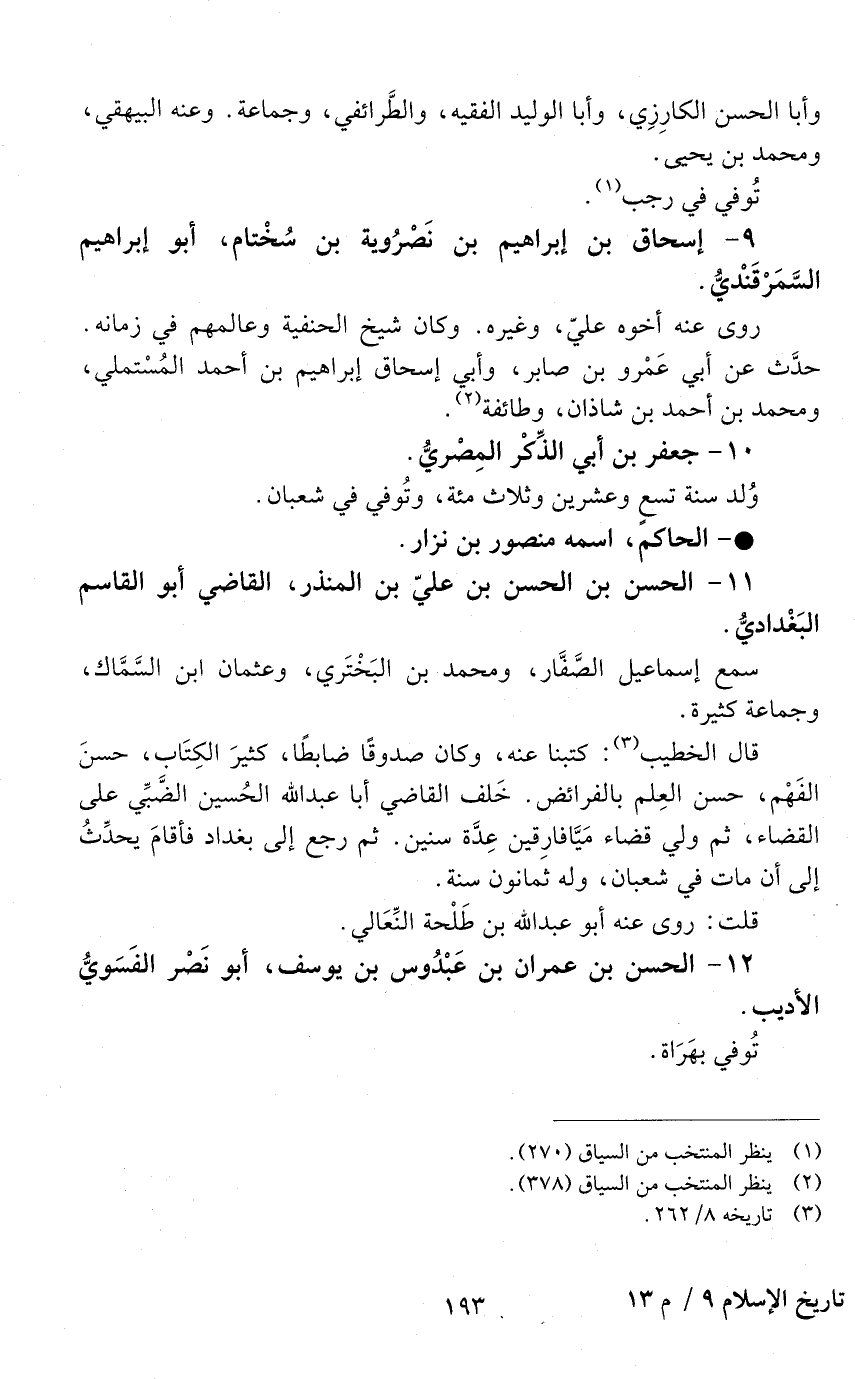 وأبا الحسن الكارِزِي، وأبا الوليد الفقيه، والطَّرائفي، وجماعة. وعنه البيهقي،
ومحمد بن يحيى.
تُوفي في رجب(١).
٩- إسحاق بن إبراهيم بن نَصْرُوية بن سُخْتام، أبو إبراهيم
السَّمَرْقَنْديُّ.
روى عنه أخوه عليّ، وغيره. وكان شيخ الحنفية وعالمهم في زمانه.
حدَّث عن أبي عَمْرو بن صابر، وأبي إسحاق إبراهيم بن أحمد المُسْتملي،
ومحمد بن أحمد بن شاذان، وطائفة(٢).
١٠- جعفر بن أبي الذِّكْر المِصْريُّ.
وُلد سنة تسع وعشرين وثلاث مئة، وتُوفي في شعبان.
●- الحاكم، اسمه منصور بن نزار.
١١- الحسن بن الحسن بن عليّ بن المنذر، القاضي أبو القاسم
البَغْداديُّ.
سمع إسماعيل الصَّفَّار، ومحمد بن البَخْتَري، وعثمان ابن السَّمَّاك،
وجماعة كثيرة.
قال الخطيب(٣): كتبنا عنه، وكان صدوقًا ضابطًا، كثيرَ الكِتَاب، حسنَ
الفَهْم، حسن العِلم بالفرائض. خَلف القاضي أبا عبدالله الحُسين الضَّبِّي على
القضاء، ثم ولي قضاء مَيَّافارِقين عِدَّة سنين. ثم رجع إلى بغداد فأقامَ يحدِّثُ
إلى أن مات في شعبان، وله ثمانون سنة.
قلت: روى عنه أبو عبدالله بن طَلْحة النِّعَالي.
١٢- الحسن بن عمران بن عَبْدُوس بن يوسف، أبو نَصْر الفَسَويُّ
الأديب.
تُوفي بهَرَاة.
(١) ينظر المنتخب من السياق (٢٧٠).
(٢) ينظر المنتخب من السياق (٣٧٨).
(٣) تاريخه ٨/ ٢٦٢.
تاريخ الإسلام ٩ / م ١٣
١٩٣